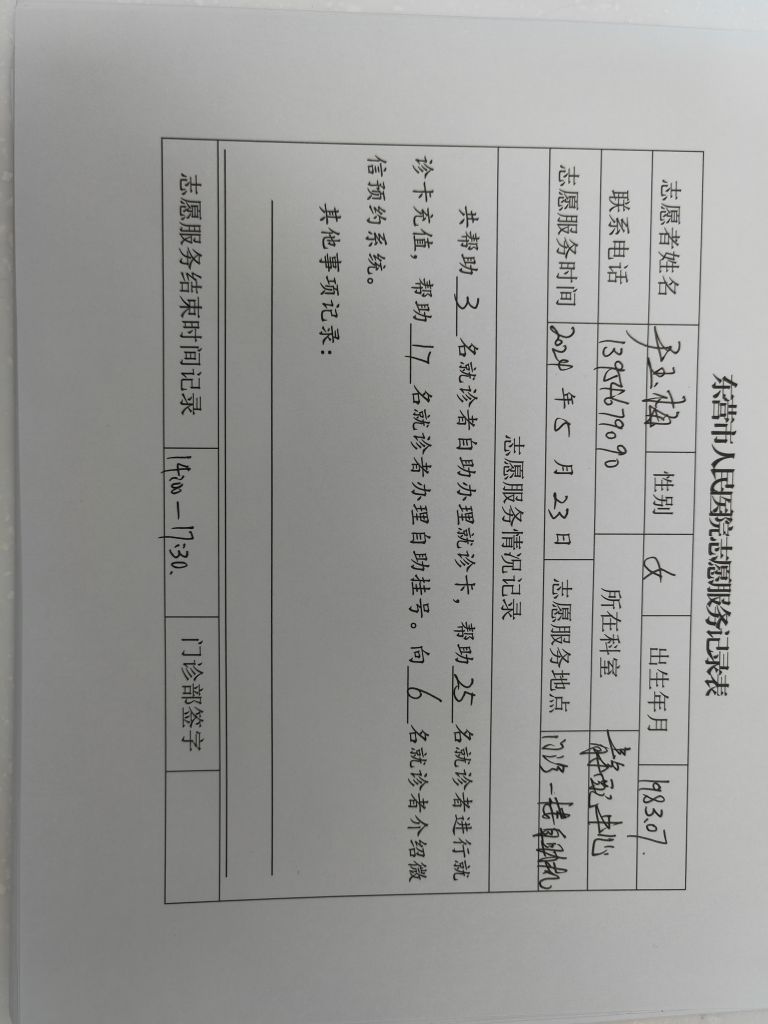 东营市人民医院志愿服务记录表
志愿者姓名 性别 女 出生年月 1983.07.
联系电话 13954679090 所在科室 中心
志愿服务时间 2024 年 5 月 23 日 志愿服务地点 门诊一楼自助机
志愿服务情况记录
共帮助 3 名就诊者自助办理就诊卡，帮助 25 名就诊者进行就
诊卡充值，帮助 17 名就诊者办理自助挂号。向 6 名就诊者介绍微
信预约系统。
其他事项记录：
志愿服务结束时间记录 14:00—17:30. 门诊部签字